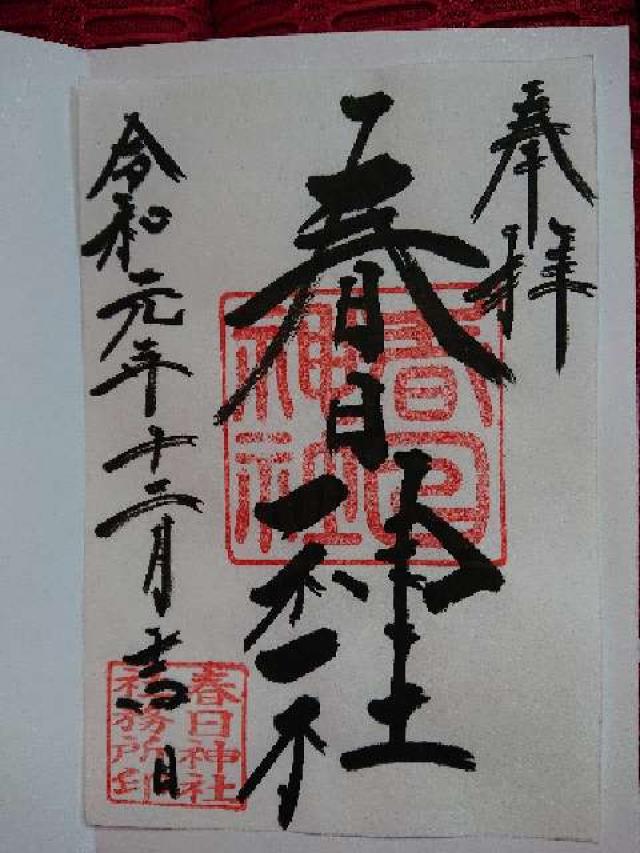 奉拝
春日神社
春日神社
令和元年十二月吉日
春日神社
社務所印